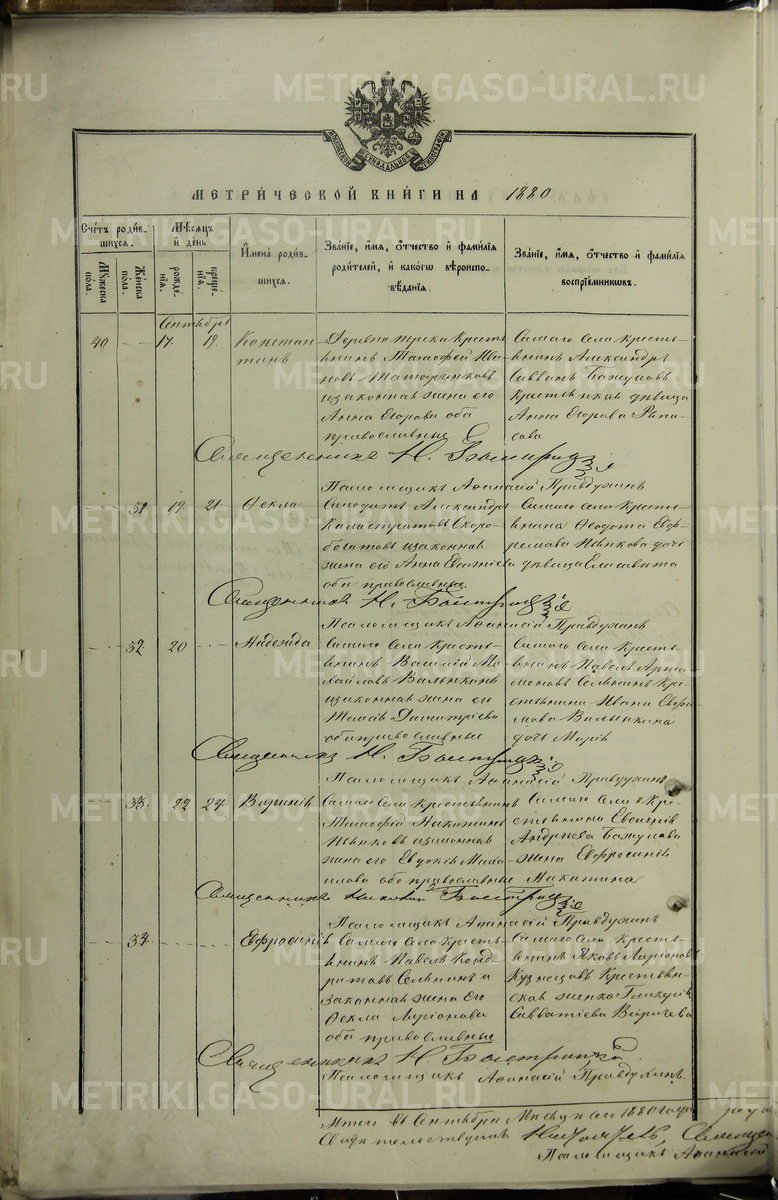 METRIKI.GASO-URAL.RU
МОСКОВСКОЙ СѴНОДАЛЬНОЙ ТИПОГРАФІИ
МЕТРИ́ЧЕСКОЙ КНИ́ГИ НА 1880
Сче́тъ роди́в-
шихся.
Мꙋ́жеска
пола.
Же́нска
по́ла.
Мѣ́сяцъ
и҆ де́нь
рожде́-
нїѧ.
креще́-
нїѧ.
И҆мена̀ роди́в-
шихся.
Зва́нїе, и҆́мя, ѻ҆́тчество и҆ фами́лїя
роди́телей, и҆ како́гѡ вѣроиспо-
вѣ́данїя.
Зва́нїе, и҆́мя, ѻ҆́тчество и҆ фами́лїя
воспрїе́мникѡвъ.
Сентябрь
17. 19. Констан
тинъ
Деревня Кресть
янинъ Тимофей Ива
новъ
и законная жена его
Анна Егорова оба
православные
Самаго села кресть-
янинъ Александръ
Саввинъ Бажуковъ
Крестьянская дѣвица
Анна Егорова
Священникъ Н. Быстрицкій
Псаломщикъ Аѳанасій Правдухинъ
31 19. 21. Ѳекла
Александръ
Скоро-
богатовъ и законная
жена его Анна Евгеніева
оба православные
Самаго села кресть-
янина Ѳедота Еф-
ремова Пьянкова дочь
дѣвица Елисавета
Священникъ Н. Быстрицкій
Псаломщикъ Аѳанасій Правдухинъ
32 20 Надежда
Самаго села кресть-
янинъ Василій Ми-
хайловъ Валынкинъ
и законная жена его
Таисія Димитріева
оба православные
Самаго села кресть-
янинъ Павелъ
Селянинъ кре-
стьянина Ивана Ефи-
мова Валынкина
дочь Марія
Священникъ Н. Быстрицкій
Псаломщикъ Аѳанасій Правдухинъ
33. 22 24. Варвара
Самаго села крестьянинъ
Тимофей Никитинъ
Пьянковъ и законная
жена его Евдокія Миха
илова оба православные
Самаго села кре-
стьянина Евгенія
Андреева Бажукова
жена Евфросинія
Никитина
Священникъ Николай Быстрицкій
Псаломщикъ Аѳанасій Правдухинъ
34. Евфросинія
Самаго села кресть-
янинъ Павелъ Конд
ратовъ Селянинъ и
законная жена его
Ѳекла Ларіонова
оба православные
Самаго села кресть-
янинъ Яковъ Ларіоновъ
Кузнецовъ Крестьян-
ская женка Гликерія
Савватіева
Священникъ Н. Быстрицкій
Псаломщикъ Аѳанасій Правдухинъ
Итого въ Сентябрѣ мѣсяцѣ сего 1880 года
Свидѣтельствуемъ Настоятель, Священ
Псаломщикъ Аѳанасій